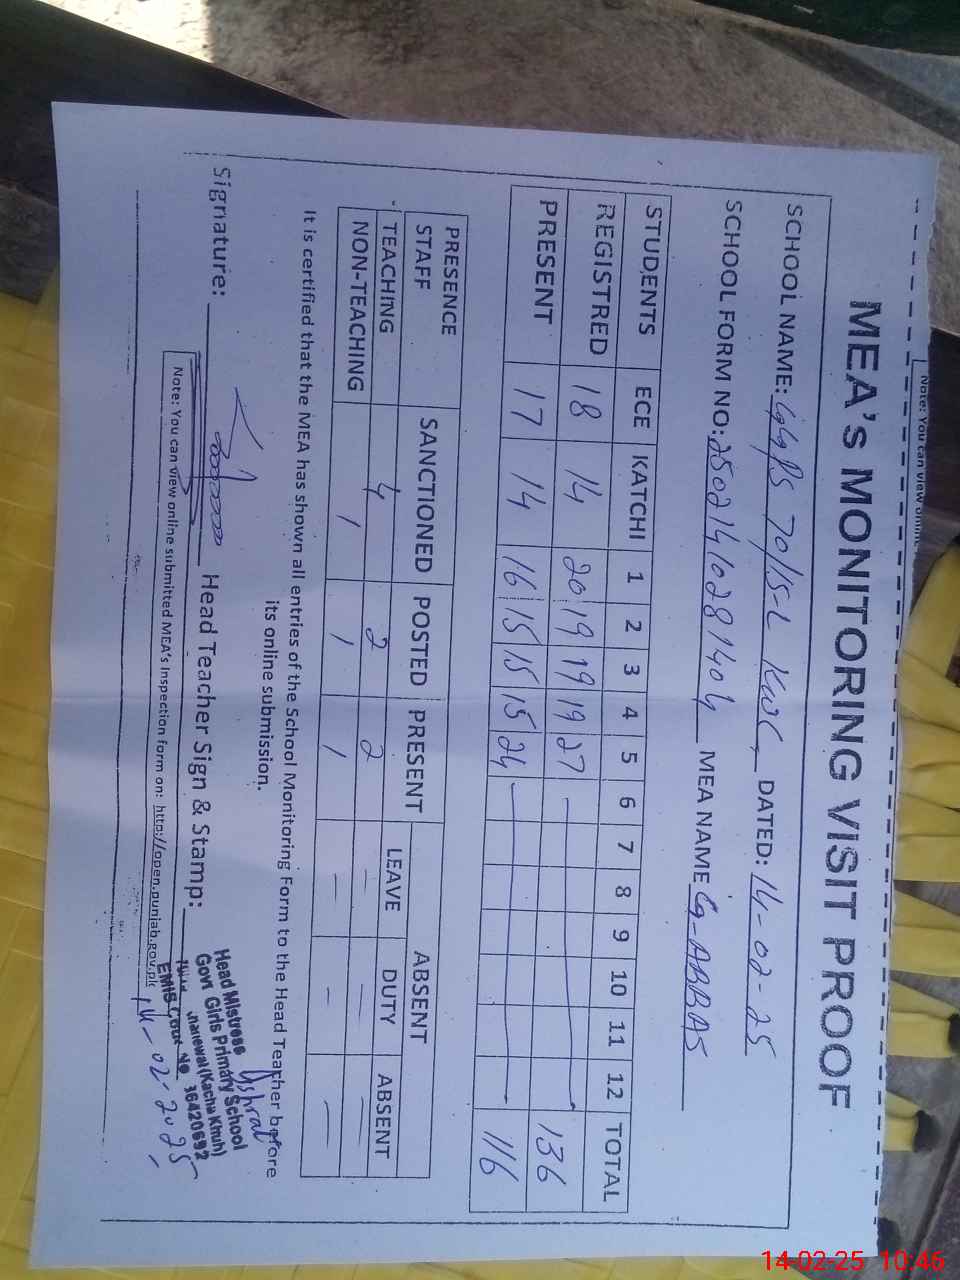 Note: You can view online
MEA's MONITORING VISIT PROOF
SCHOOL NAME: GGPS 70/15-L KWC, DATED: 14-02-25
SCHOOL FORM NO: 25021410281404 MEA NAME G-ABBAS
STUDENTS ECE KATCHI 1 2 3 4 5 6 7 8 9 10 11 12 TOTAL
REGISTRED 18 14 20 19 19 19 27 136
PRESENT 17 14 16 15 15 15 24 116
PRESENCE STAFF SANCTIONED POSTED PRESENT ABSENT
LEAVE DUTY ABSENT
TEACHING 4 2 2 — — —
NON-TEACHING 1 1 1 — — —
It is certified that the MEA has shown all entries of the School Monitoring Form to the Head Teacher before
its online submission.
Signature: Head Teacher Sign & Stamp:
Ishrat
Head Mistress
Govt Girls Primary School
Khanewal (Kacha Khuh)
EMIS Code No 36420692
Note: You can view online submitted MEA's Inspection form on: http://open.punjab.gov.pk
14-02-2025
14-02-25 10:46